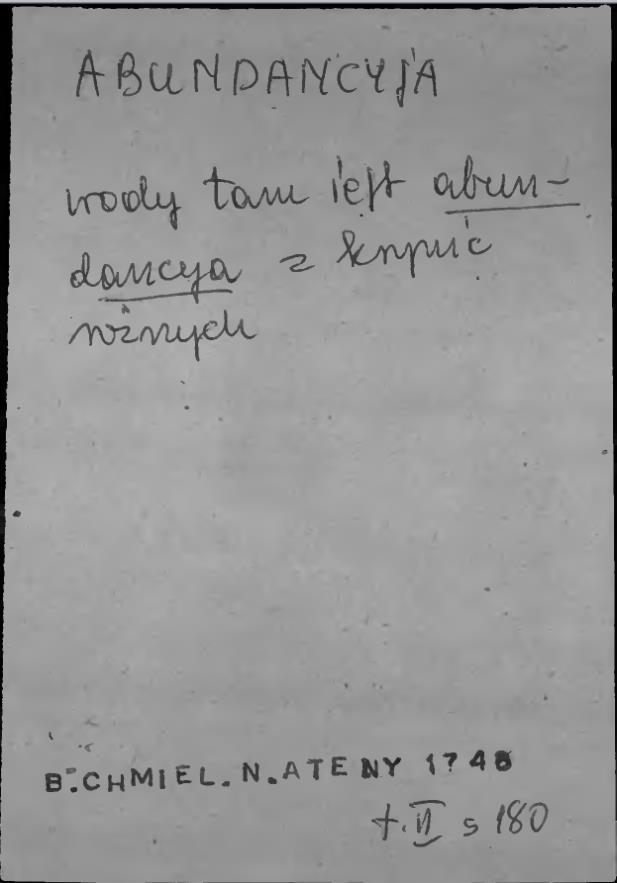 ABUNDANCYJA
wody tam ieſt abun-
dancya z krynic
rożnych
B.CHMIEL. N. ATENY 1748
t. II s 180